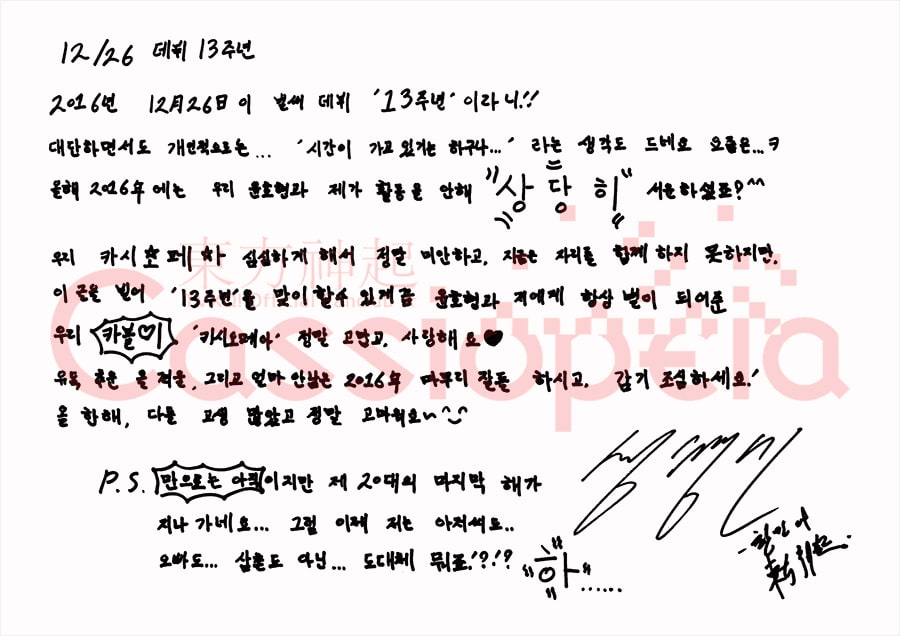 12/26 데뷔 13주년
2016년 12月26日이 벌써 데뷔 '13주년' 이라니!!
대단하면서도 개인적으로는... '시간이 가고 있기는 하구나...' 라는 생각도 드네요 오늘은...ㅋ
올해 2016年에는 우리 윤호형과 제가 활동을 안해 "상당히" 서운하셨죠?^^
우리 카시오페아 심심하게 해서 정말 미안하고, 지금은 자리를 함께 하지 못하지만,
이 글을 빌어 '13주년'을 맞이 할수 있게끔 윤호형과 저에게 항상 별이 되어준
우리 카블♡이 '카시오페아' 정말 고맙고, 사랑해요♥
유독 추운 올 겨울, 그리고 얼마 안남은 2016年 마무리 잘들 하시고, 감기 조심하세요!
올 한해, 다들 고생 많았고 정말 고마워요~^_^
P.S. 만으로는 아직이지만 제 20대의 마지막 해가
지나가네요... 그럼 이제 저는 아저씨요..
오빠도... 삼촌도 아닌... 도대체 뭐죠!?!?
"하"......
東方神起
Cassiopeia